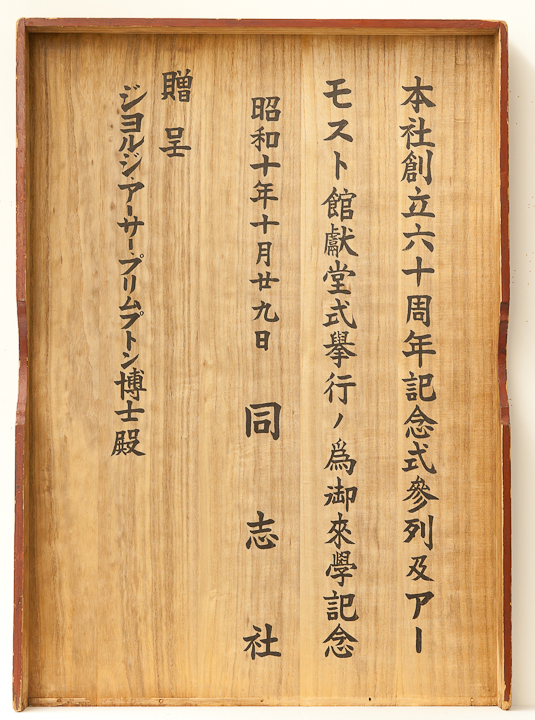 本社創立六十周年記念式參列及アー
モスト館獻堂式擧行ノ爲御來學記念
昭和十年十月廿九日 同志社
贈呈
ジヨルジ・アーサー・プリムプトン博士殿